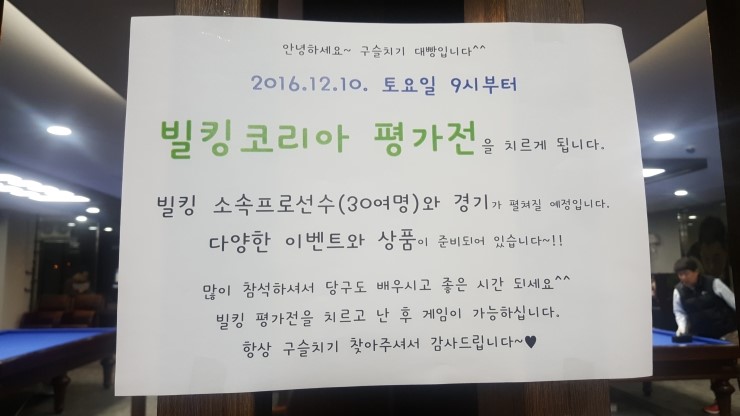 안녕하세요~ 구슬치기 대빵입니다^^
2016.12.10. 토요일 9시부터
빌킹코리아 평가전을 치르게 됩니다.
빌킹 소속프로선수(30여명)와 경기가 펼쳐질 예정입니다.
다양한 이벤트와 상품이 준비되어 있습니다~!!
많이 참석하셔서 당구도 배우시고 좋은 시간 되세요^^
빌킹 평가전을 치르고 난 후 게임이 가능하십니다.
항상 구슬치기 찾아주셔서 감사드립니다~♥